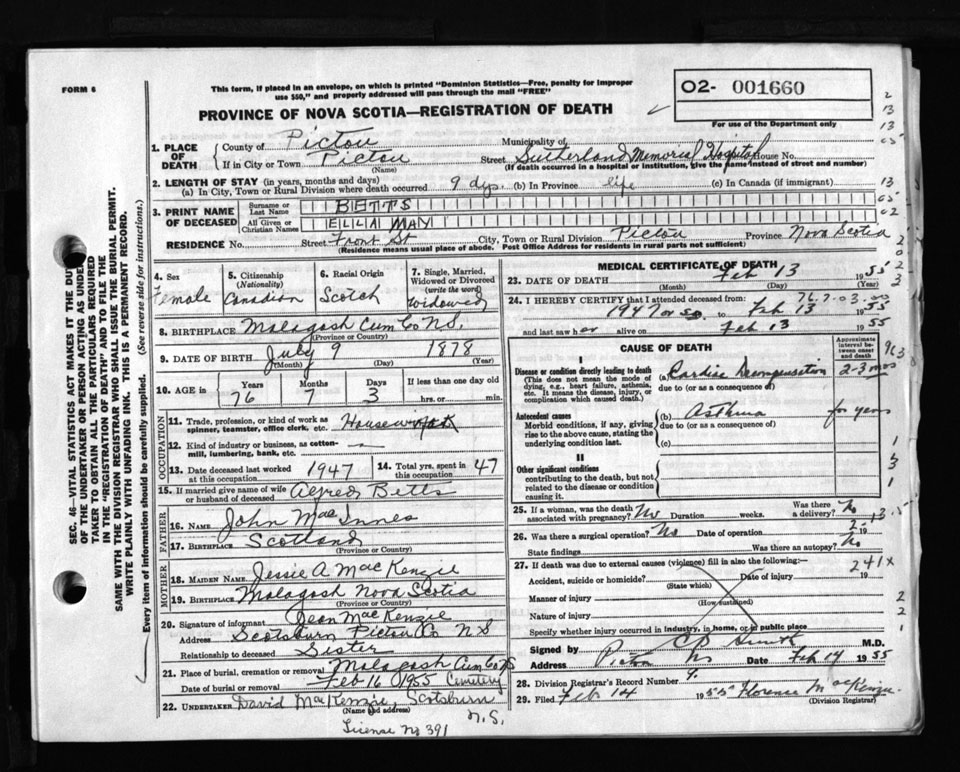 FORM 6
This form, if placed in an envelope, on which is printed "Dominion Statistics—Free, penalty for improper
use $50," and properly addressed will pass through the mail "FREE"
PROVINCE OF NOVA SCOTIA—REGISTRATION OF DEATH
02- 001660
For use of the Department only
1. PLACE OF DEATH
County of Pictou Municipality of
If in City or Town Pictou Street Sutherland Memorial Hospital House No.
(Name) (If death occurred in a hospital or institution, give the name instead of street and number)
2. LENGTH OF STAY (in years, months and days)
(a) In City, Town or Rural Division where death occurred 9 dys. (b) In Province life (c) In Canada (if immigrant)
3. PRINT NAME OF DECEASED
Surname or Last Name BETTS
All Given or Christian Names ELLA MAY
RESIDENCE No. Street Front St City, Town or Rural Division Pictou Province Nova Scotia
(Residence means usual place of abode. Post Office Address for residents in rural parts not sufficient)
4. Sex Female
5. Citizenship (Nationality) Canadian
6. Racial Origin Scotch
7. Single, Married, Widowed or Divorced (write the word) Widowed
8. BIRTHPLACE Malagash Cum Co N.S.
(Province or Country)
9. DATE OF BIRTH July 9 1878
(Month) (Day) (Year)
10. AGE in
Years Months Days If less than one day old
76 7 3 hrs. or min.
OCCUPATION
11. Trade, profession, or kind of work as spinner, teamster, office clerk, etc. Housework
12. Kind of industry or business, as cotton-mill, lumbering, bank, etc. —
13. Date deceased last worked at this occupation 1947
14. Total yrs. spent in this occupation 47
15. If married give name of wife or husband of deceased Alfred Betts
FATHER
16. NAME John MacInnes
17. BIRTHPLACE Scotland
(Province or Country)
MOTHER
18. MAIDEN NAME Jessie A MacKenzie
19. BIRTHPLACE Malagash Nova Scotia
(Province or Country)
20. Signature of informant Jean MacKenzie
Address Scotsburn Pictou Co N S
Relationship to deceased Sister
21. Place of burial, cremation or removal Malagash Cum Co NS
Date of burial or removal Feb 16 1955 Cemetery
22. UNDERTAKER David MacKenzie, Scotsburn
(Name and address) N.S.
License No 391
MEDICAL CERTIFICATE OF DEATH
23. DATE OF DEATH Feb 13 1955
(Month) (Day) (Year)
24. I HEREBY CERTIFY that I attended deceased from:
1947 or so to Feb 13 1955
and last saw her alive on Feb 13 1955
CAUSE OF DEATH
Approximate interval between onset and death
I
Disease or condition directly leading to death
(This does not mean the mode of dying, e.g., heart failure, asthenia, etc. It means the disease, injury, or complication which caused death.)
(a) Cardiac Decompensation 2-3 mos
due to (or as a consequence of)
Antecedent causes
Morbid conditions, if any, giving rise to the above cause, stating the underlying condition last.
(b) Asthma for years
due to (or as a consequence of)
(c)
II
Other significant conditions
contributing to the death, but not related to the disease or condition causing it.
25. If a woman, was the death associated with pregnancy? No Duration weeks. Was there a delivery? No
26. Was there a surgical operation? No Date of operation 19
State findings Was there an autopsy? No
27. If death was due to external causes (violence) fill in also the following:—
Accident, suicide or homicide? Date of injury 19
(State which)
Manner of injury
(How sustained)
Nature of injury
Specify whether injury occurred in industry, in home, or in public place
241X
Signed by Smith M.D.
Address Pictou NS Date Feb 14 1955
28. Division Registrar's Record Number 9.
29. Filed Feb 14 1955 Florence MacKenzie
(Division Registrar)
SEC. 46—VITAL STATISTICS ACT MAKES IT THE DUTY
OF THE UNDERTAKER OR PERSON ACTING AS UNDERTAKER
TO OBTAIN ALL THE PARTICULARS REQUIRED
IN THE "REGISTRATION OF DEATH" AND TO FILE THE
SAME WITH THE DIVISION REGISTRAR WHO SHALL ISSUE THE BURIAL PERMIT.
WRITE PLAINLY WITH UNFADING INK. THIS IS A PERMANENT RECORD.
Every item of information should be carefully supplied. (See reverse side for instructions.)